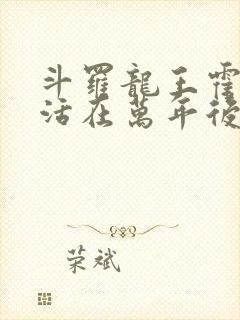 斗羅龍王霍
活在萬年後
荣斌